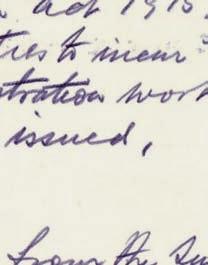 act 1915.
ties to incur
stration work
issued,
from the